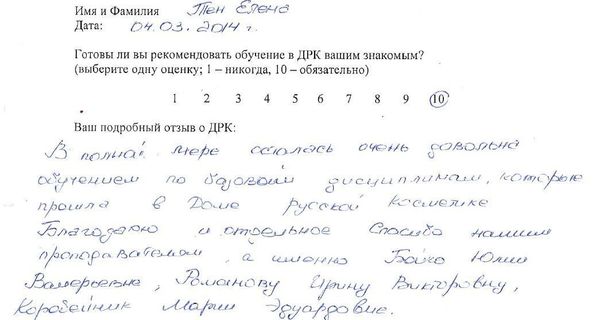 Имя и Фамилия Тен Елена
Дата: 04.03.2014 г.
Готовы ли вы рекомендовать обучение в ДРК вашим знакомым?
(выберите одну оценку; 1 – никогда, 10 – обязательно)
1 2 3 4 5 6 7 8 9 10
Ваш подробный отзыв о ДРК:
В полной мере осталась очень довольна
обучением по базовой дисциплинам, которые
прошла в Доме Русской Косметике
Благодарю и отдельное Спасибо нашим
преподавателям, а именно Бойко Юлии
Валерьевне, Романову Ирину Викторовну,
Коробейник Марии Эдуардовне.